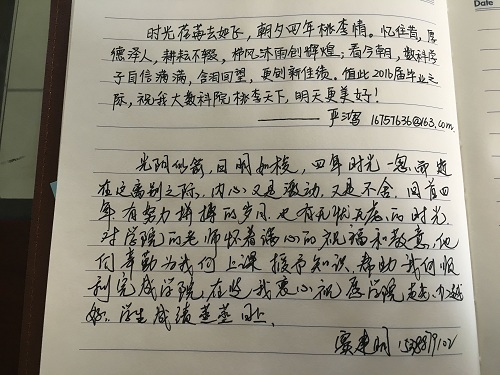 Date
时光荏苒去如飞，朝夕四年桃李情。忆往昔，厚
德泽人，耕耘不辍，栉风沐雨创辉煌；看今朝，数科学
子自信满满，含泪回望，更创新佳绩。值此2016届毕业之
际，祝我大数科院桃李天下，明天更美好！
——— 严鸿 16757636@163.com
光阴似箭，日月如梭，四年时光一忽而过
在这离别之际，内心又是激动，又是不舍。回首四
年有努力拼搏的岁月，也有无忧无虑的时光
对学院的老师怀着满心的祝福和敬意，他
们辛勤为我们上课 授予知识，帮助我们顺
利完成学院，在此我衷心祝愿学院越办越
好，学生成绩蒸蒸日上。
东明